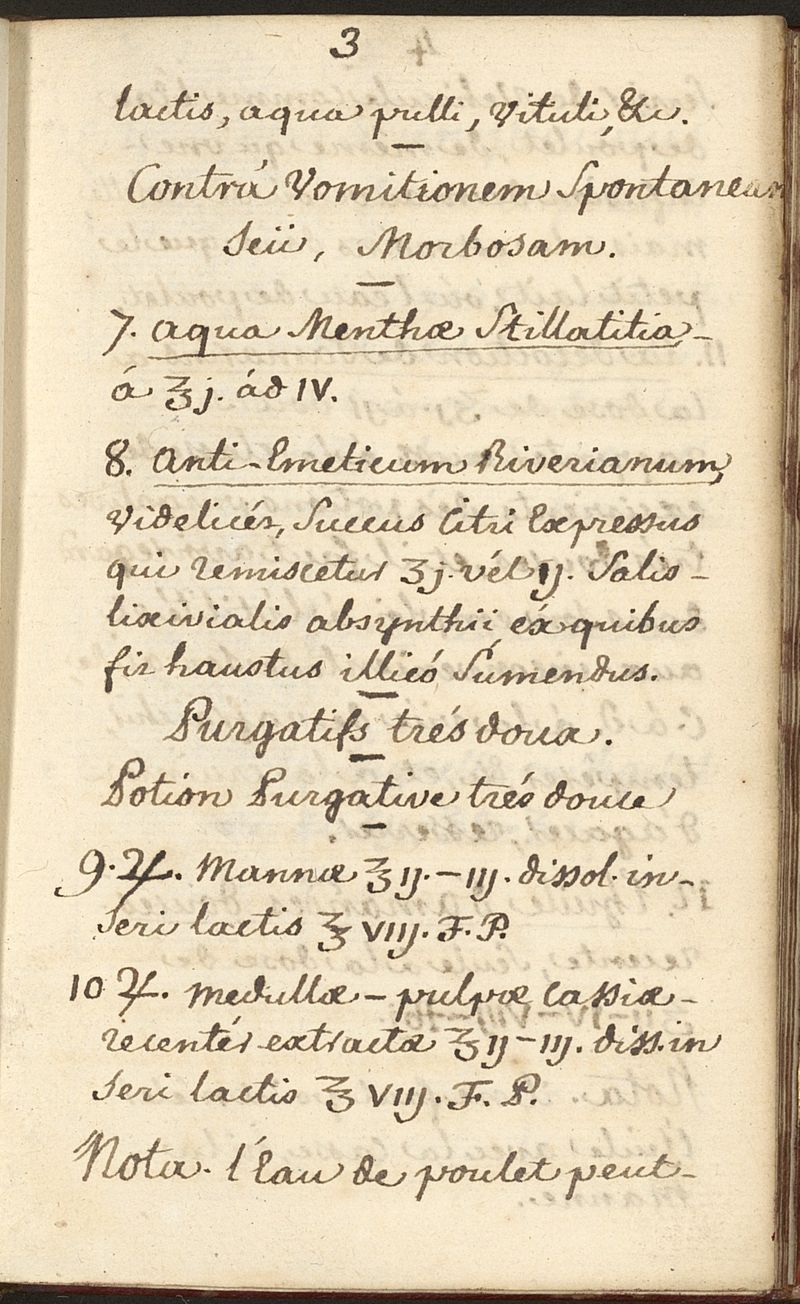 3
lactis, aqua pulli, Vituli, &c.
Contrá Vomitionem Spontaneam
Seü, Morbosam.
7. aqua Menthæ Stillatitia-
á ℥j. ád IV.
8. Anti-Emeticum Riverianum,
Videlicét, Succus Citri Expressus
qui remiscetur ʒj. vél ij. Salis-
lixivialis absynthii, éx quibus
fit haustus illicó Súmendus.
Purgatifs trés doux.
Potion Purgative trés douce
9. ♃. Mannæ ℥ij.-iij. dissol. in-
Seri lactis ℥ VIIj. F. P.
10 ♃. Medullæ - pulpæ Cassiæ-
recentér extractæ ℥ij-iij. diss. in
Seri lactis ℥ VIIj. F. P.
Nota. l'Eau de poulet peut-